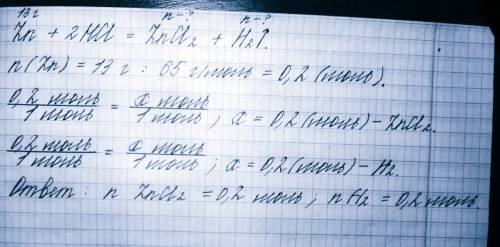 13г n-? n-?
Zn + 2HCl = ZnCl₂ + H₂↑.
n(Zn) = 13 г : 65 г/моль = 0,2 (моль).
0,2 моль / 1 моль = x моль / 1 моль ; x = 0,2 (моль) - ZnCl₂.
0,2 моль / 1 моль = x моль / 1 моль ; x = 0,2 (моль) - H₂.
Ответ: n ZnCl₂ = 0,2 моль; n H₂ = 0,2 моль.